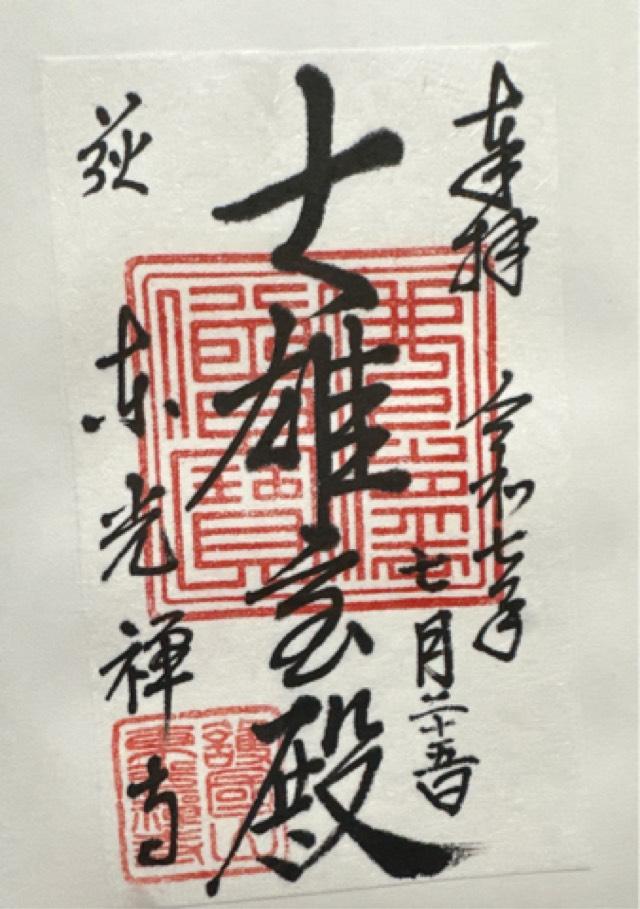 奉拝
令和七年
七月二十五日
大雄宝殿
萩
東光禅寺
護國山